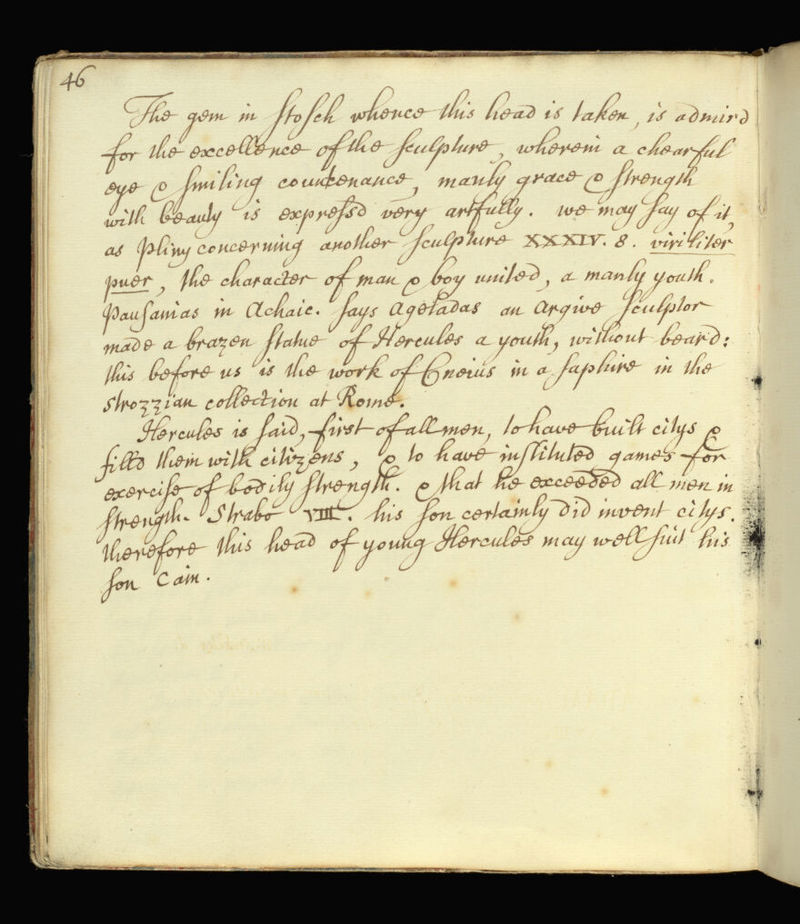 46
The gem in Stosch whence this head is taken, is admird
for the excellence of the sculpture, wherein a chearful
eye & smiling countenance, manly grace & strength
with beauty is expressd very artfully. we may say of it,
as Pliny concerning another sculpture XXXIV. 8. viriliter
puer, the character of man & boy united, a manly youth.
Pausanias in Achaic. says Ageladas an Argive sculptor
made a brazen statue of Hercules a youth, without beard:
this before us is the work of Cneius in a saphire in the
Strozzian collection at Rome.
Hercules is said, first of all men, to have built citys &
filld them with citizens, & to have instituted games for
exercise of bodily strength. & that he exceeded all men in
strength. Strabo VIII. his son certainly did invent citys.
therefore this head of young Hercules may well suit his
son Cain.